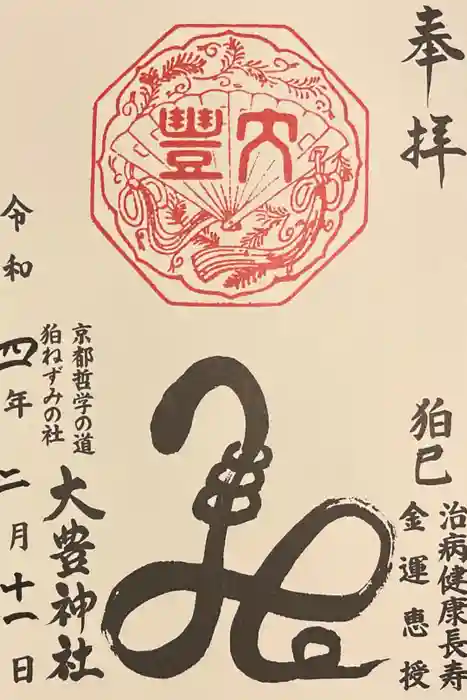 奉拝
大豐
狛巳
治病健康長寿
金運恵授
京都哲学の道
狛ねずみの社
大豊神社
令和四年二月十一日